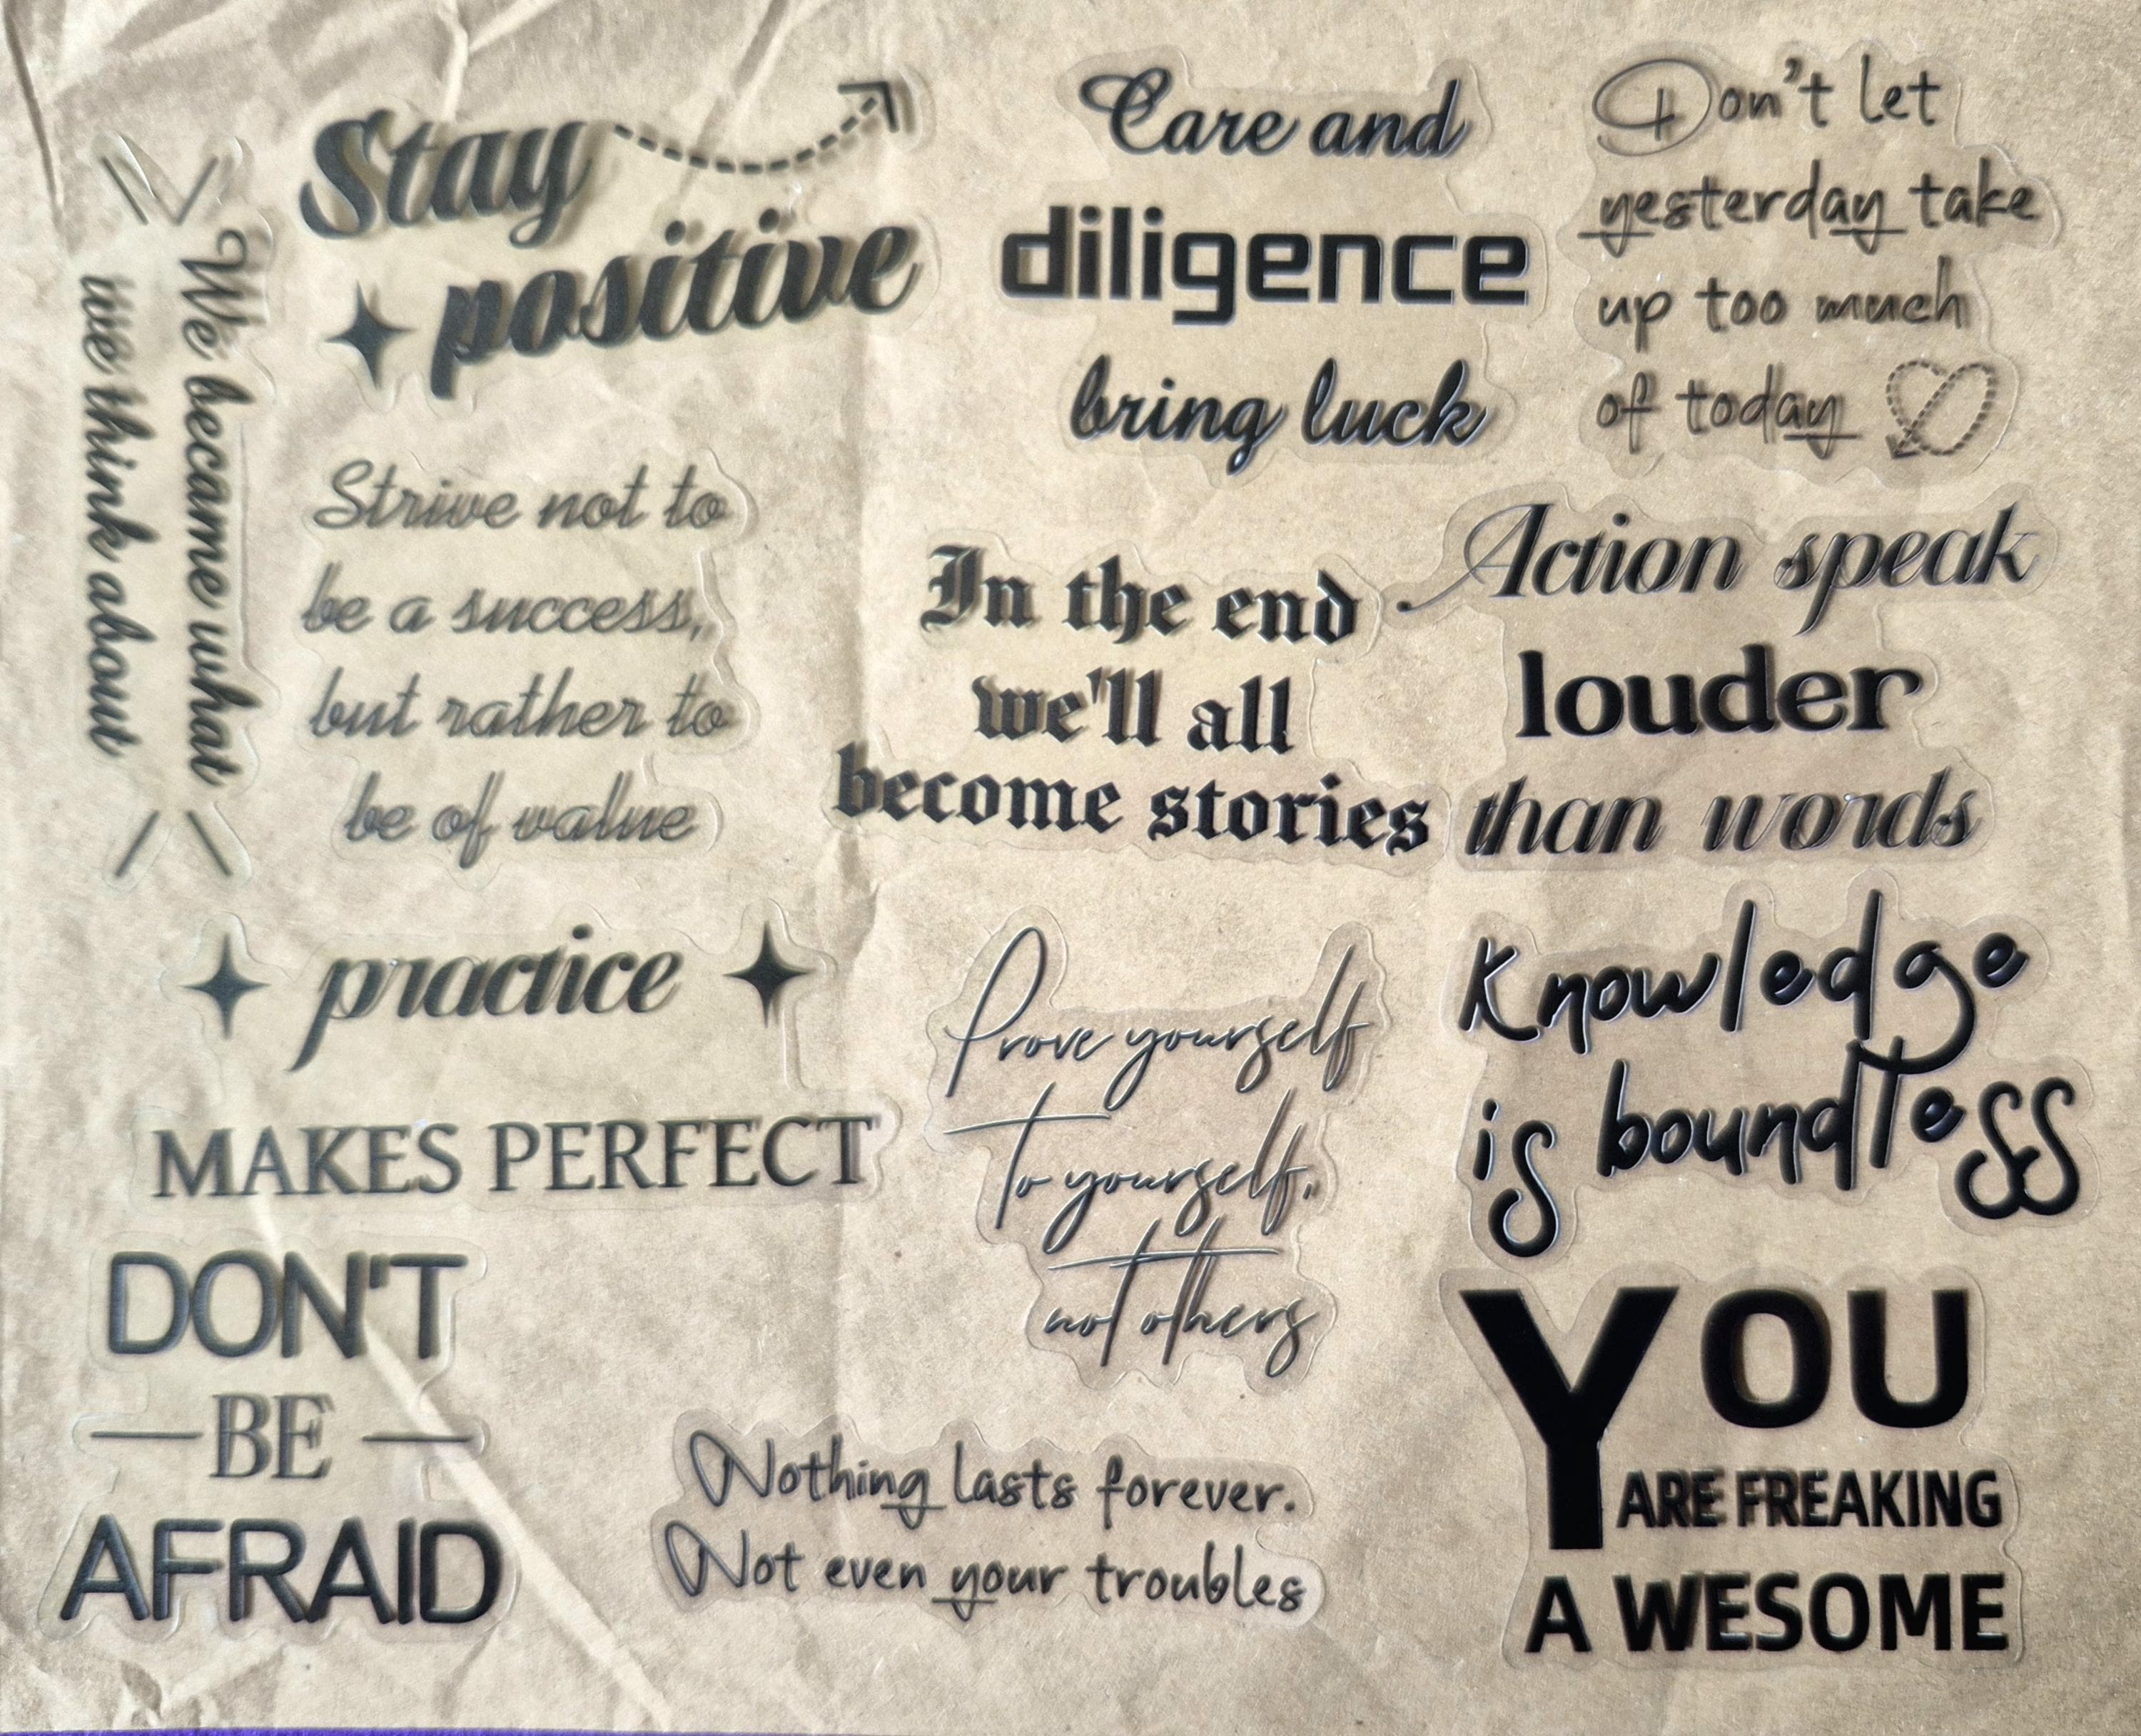 We became what
we think about
Stay
positive
Care and
diligence
bring luck
Don't let
yesterday take
up too much
of today
Strive not to
be a success,
but rather to
be of value
In the end
we'll all
become stories
Action speak
louder
than words
practice
MAKES PERFECT
Prove yourself
To yourself,
not others
Knowledge
is boundless
DON'T
BE
AFRAID
Nothing lasts forever.
Not even your troubles
YOU
ARE FREAKING
A WESOME